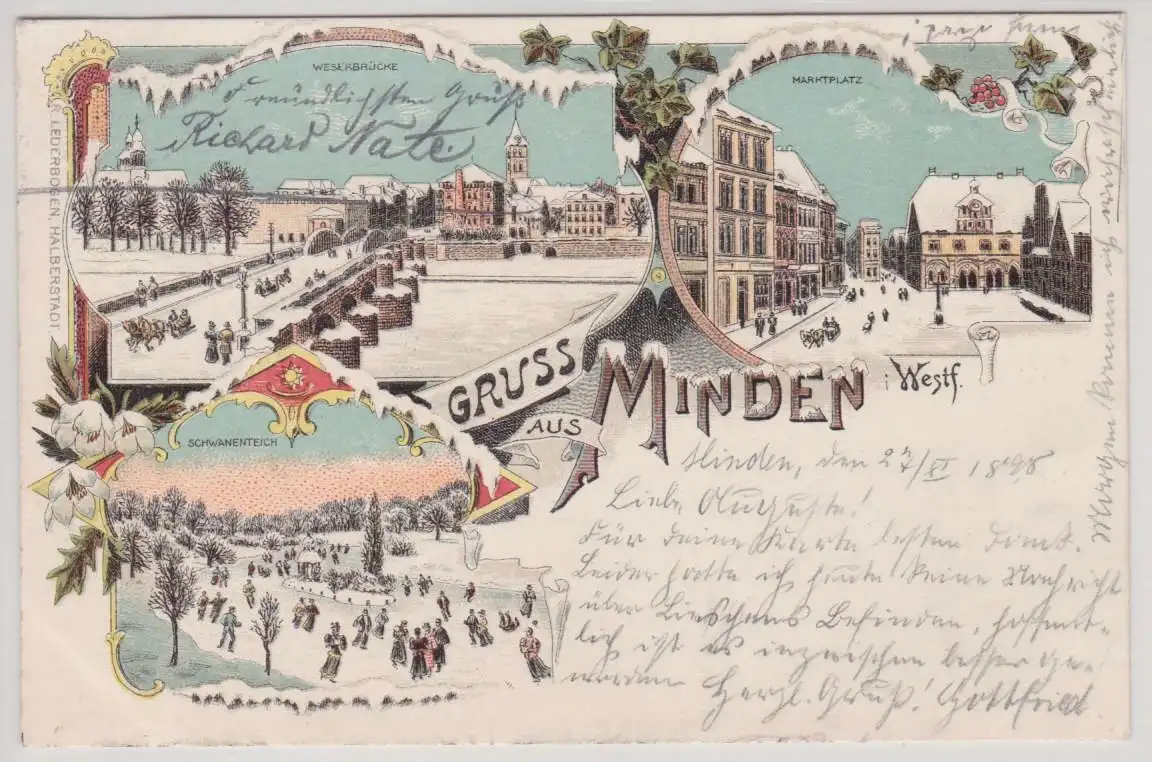 WESERBRÜCKE
Freundlichsten Gruß
Richard Nate.
MARKTPLATZ
LEDERBOGEN, HALBERSTADT.
SCHWANENTEICH
GRUSS
AUS
MINDEN i. Westf.
Minden, den 27/XI 1898
Liebe Auguste!
Für Deine Karte besten Dank.
Leider hatte ich heute keine Nachricht
über Lieschens Befinden, hoffent-
lich ist es inzwischen besser ge-
worden Herzl. Gruß! Gottfried
Morgen komme ich wahrscheinlich